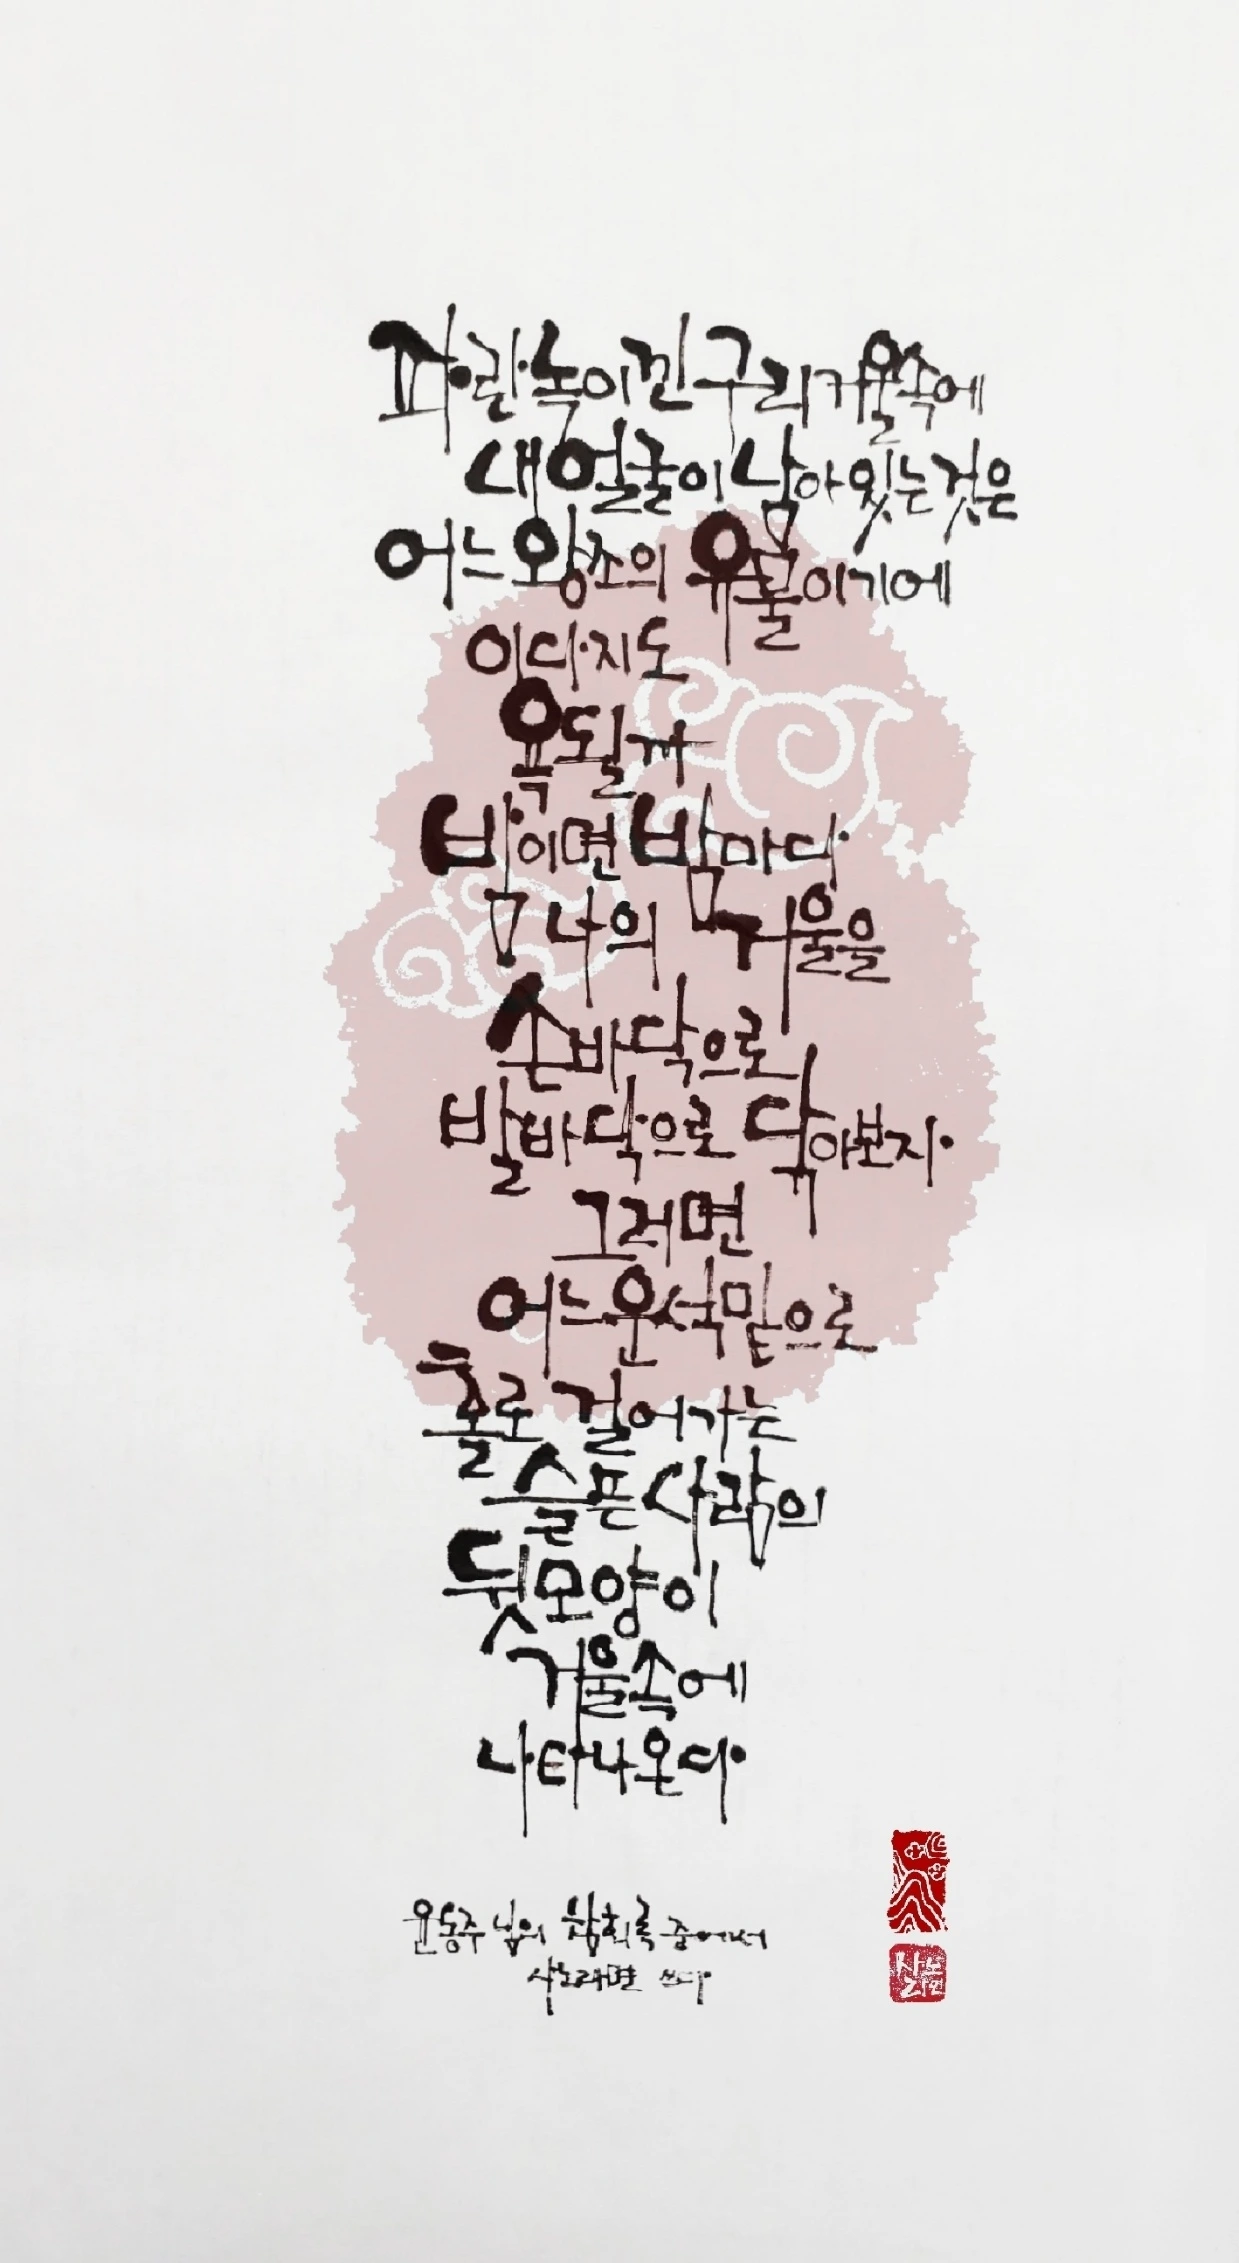 파란 녹이 낀 구리거울 속에
내 얼굴이 남아 있는 것은
어느 왕조의 유물이기에
이다지도
욕될까
밤이면 밤마다
나의 거울을
손바닥으로
발바닥으로 닦아 보자.
그러면
어느 운석 밑으로
홀로 걸어가는
슬픈 사람의
뒷모양이
거울 속에
나타나온다.
윤동주 님의 참회록 중에서
사노라면 쓰다